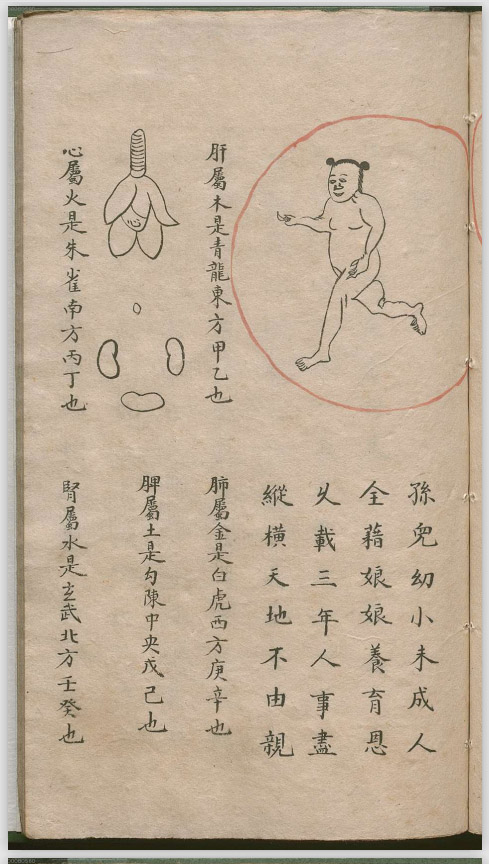 孫兒幼小未成人
全藉娘娘養育恩
乆載三年人事盡
縱橫天地不由親
肝屬木是青龍東方甲乙也
肺屬金是白虎西方庚辛也
脾屬土是勾陳中央戊己也
心屬火是朱雀南方丙丁也
腎屬水是玄武北方壬癸也